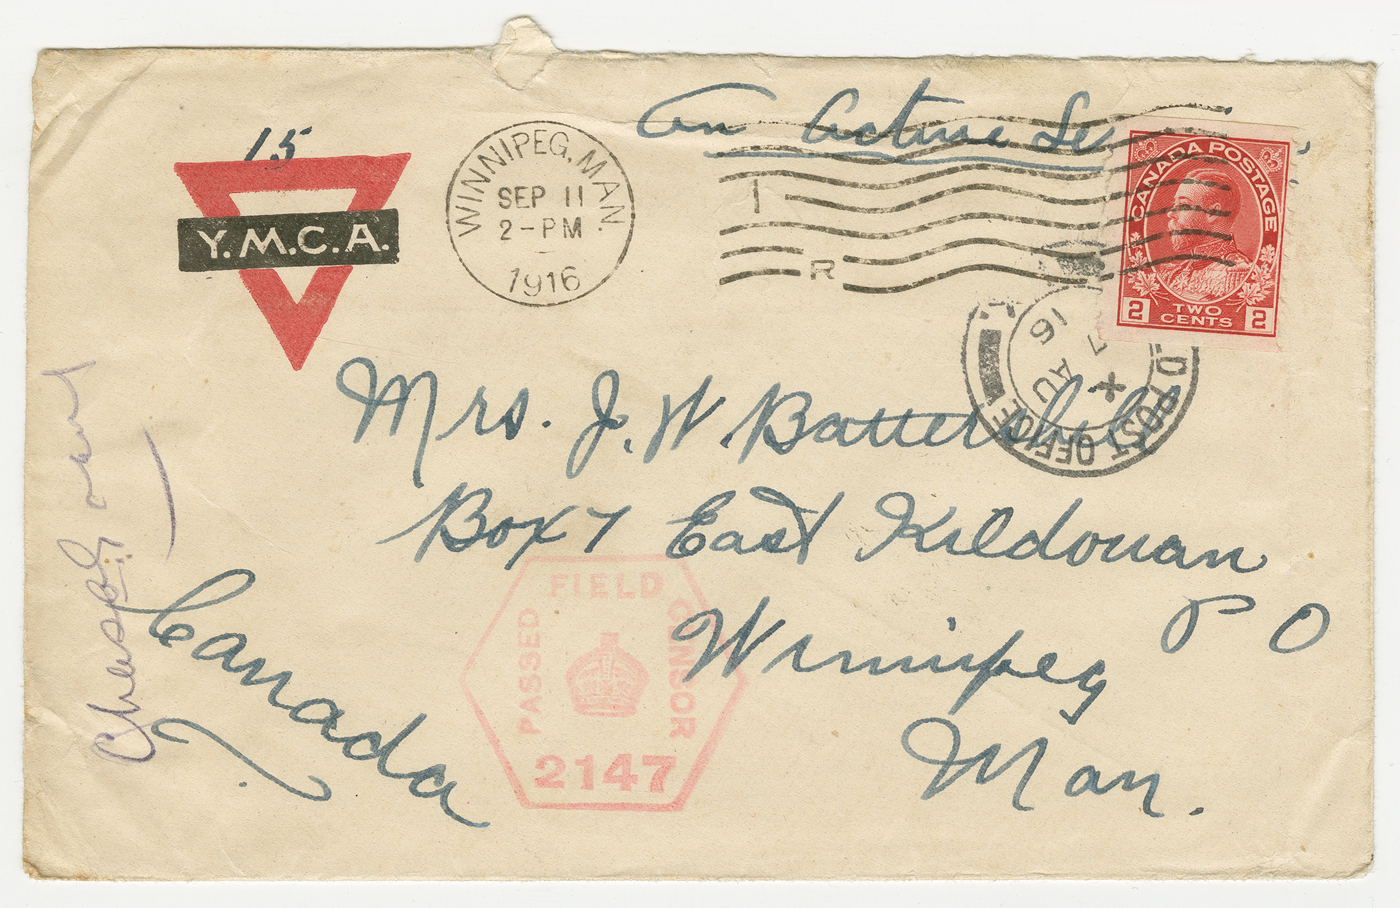 On Active Se
15
Y.M.C.A.
WINNIPEG, MAN.
SEP 11
2-PM
1916
I
R
CANADA POSTAGE
2 TWO CENTS 2
D POST OFFICE
X
AU
7
16
Mrs. J. W. Battersbil
Box 7 East Kildonan
P O
Winnipeg
Man.
Canada
PASSED FIELD CENSOR
2147